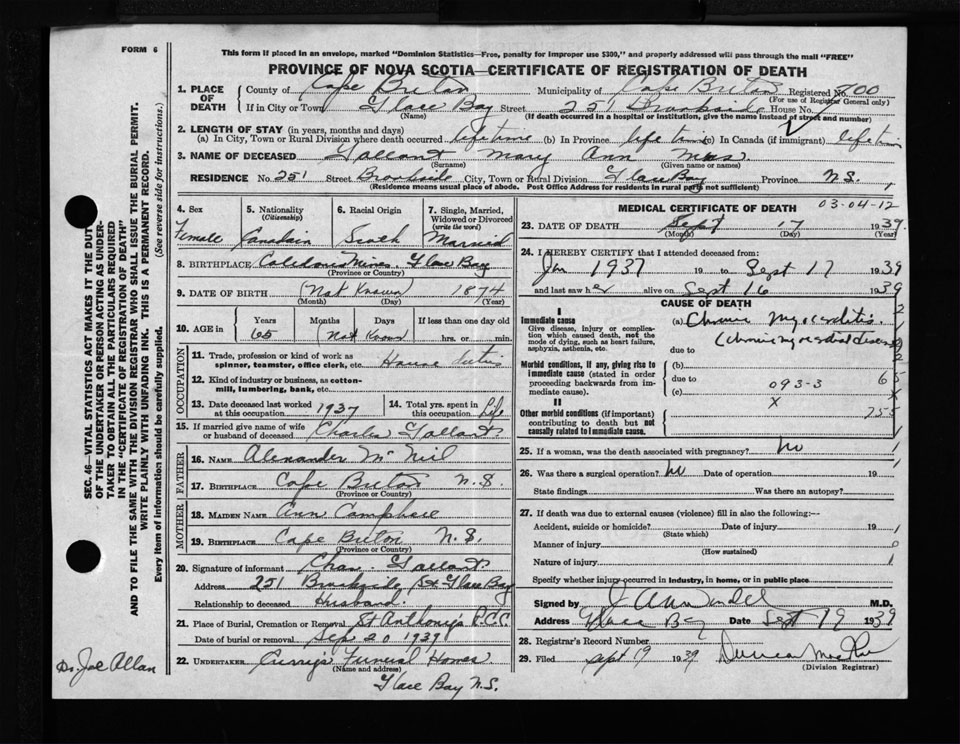 FORM 6
This form if placed in an envelope, marked "Dominion Statistics—Free, penalty for improper use $300," and properly addressed will pass through the mail "FREE"
PROVINCE OF NOVA SCOTIA—CERTIFICATE OF REGISTRATION OF DEATH
1. PLACE OF DEATH County of Cape Breton Municipality of Cape Breton Registered No. 600
(For use of Registrar General only)
If in City or Town Glace Bay Street 251 Brookside House No.
(Name) (If death occurred in a hospital or institution, give the name instead of street and number)
2. LENGTH OF STAY (in years, months and days)
(a) In City, Town or Rural Division where death occurred lifetime (b) In Province life time (c) In Canada (if immigrant) lifetime
3. NAME OF DECEASED Gallant Mary Ann Mrs
(Surname) (Given name or names)
RESIDENCE No. 251 Street Brookside City, Town or Rural Division Glace Bay Province N.S.
(Residence means usual place of abode. Post Office Address for residents in rural parts not sufficient)
4. Sex Female
5. Nationality (Citizenship) Canadain
6. Racial Origin Scoth
7. Single, Married, Widowed or Divorced (write the word) Married
8. BIRTHPLACE Caledonia Mines, Glace Bay
(Province or Country)
9. DATE OF BIRTH (Not Known) 1874
(Month) (Day) (Year)
10. AGE in Years Months Days If less than one day old
65 Not Known hrs. or min.
OCCUPATION
11. Trade, profession or kind of work as spinner, teamster, office clerk, etc. House Duties
12. Kind of industry or business, as cotton-mill, lumbering, bank, etc.
13. Date deceased last worked at this occupation 1937
14. Total yrs. spent in this occupation Life
15. If married give name of wife or husband of deceased Charles Gallant
FATHER
16. NAME Alexander McNeil
17. BIRTHPLACE Cape Breton N.S.
(Province or Country)
MOTHER
18. MAIDEN NAME Ann
19. BIRTHPLACE Cape Breton N.S.
(Province or Country)
20. Signature of informant Chas. Gallant
Address 251 Brookside St Glace Bay
Relationship to deceased Husband
21. Place of Burial, Cremation or Removal St Anthony's
Date of burial or removal Sep 20 1939
22. UNDERTAKER Curry's Funeral Homes
(Name and address)
Glace Bay N.S.
MEDICAL CERTIFICATE OF DEATH
03-04-12
23. DATE OF DEATH Sept 17 1939
(Month) (Day) (Year)
24. I HEREBY CERTIFY that I attended deceased from:
Jan 1937 19 to Sept 17 1939
and last saw her alive on Sept 16 1939
CAUSE OF DEATH
I
Immediate cause (a) Chronic Myocarditis
Give disease, injury or complication which caused death, not the mode of dying, such as heart failure, asphyxia, asthenia, etc.
(Chronic myocardial disease)
due to
Morbid conditions, if any, giving rise to immediate cause (stated in order proceeding backwards from immediate cause). (b)
due to
093-3
(c)
X
II
Other morbid conditions (if important) contributing to death but not causally related to immediate cause.
25. If a woman, was the death associated with pregnancy? No
26. Was there a surgical operation? No Date of operation 19
State findings Was there an autopsy?
27. If death was due to external causes (violence) fill in also the following:—
Accident, suicide or homicide? Date of injury 19
(State which)
Manner of injury
(How sustained)
Nature of injury
Specify whether injury occurred in industry, in home, or in public place
Signed by M.D.
Address Glace Bay Date Sept 19 1939
28. Registrar's Record Number
29. Filed Sept 19 1939 Duncan
(Division Registrar)
SEC. 46—VITAL STATISTICS ACT MAKES IT THE DUTY
OF THE UNDERTAKER OR PERSON ACTING AS UNDER-
TAKER TO OBTAIN ALL THE PARTICULARS REQUIRED
IN THE "CERTIFICATE OF REGISTRATION OF DEATH"
AND TO FILE THE SAME WITH THE DIVISION REGISTRAR WHO SHALL ISSUE THE BURIAL PERMIT.
WRITE PLAINLY WITH UNFADING INK. THIS IS A PERMANENT RECORD.
Every item of information should be carefully supplied. (See reverse side for instructions.)
Dr. Joe Allan